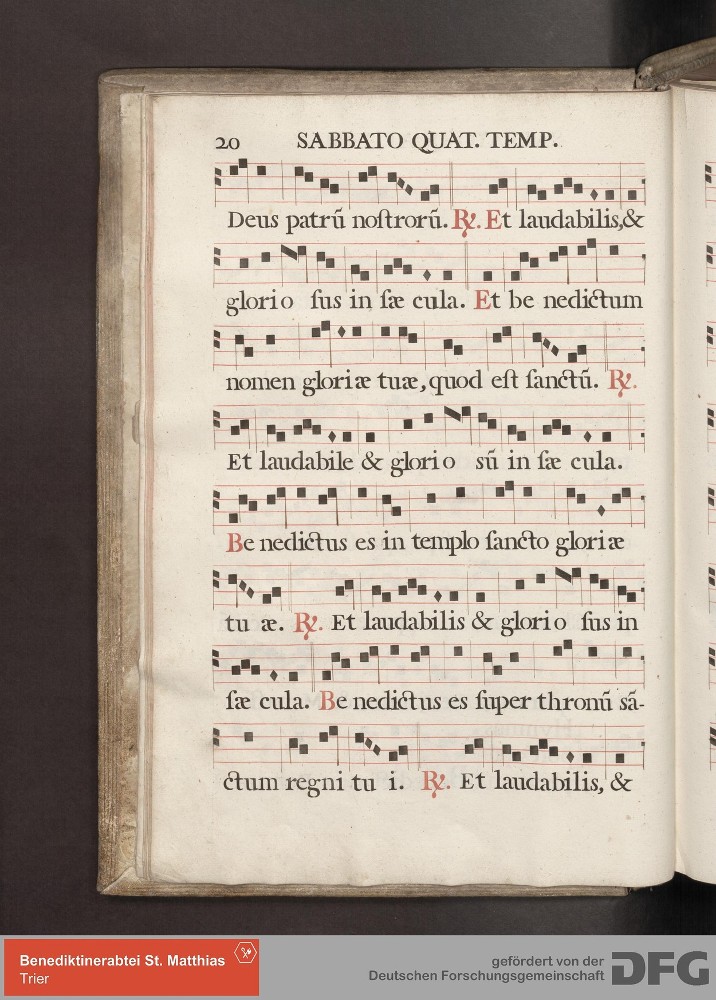 20 SABBATO QUAT. TEMP.
Deus patrũ noſtrorũ. ℟. Et laudabilis, &
glorio ſus in ſæ cula. Et be nedictum
nomen gloriæ tuæ, quod eſt ſanctũ. ℟.
Et laudabile & glorio sũ in ſæ cula.
Be nedictus es in templo ſancto gloriæ
tu æ. ℟. Et laudabilis & glorio ſus in
ſæ cula. Be nedictus es ſuper thronũ sã-
ctum regni tu i. ℟. Et laudabilis, &
Benediktinerabtei St. Matthias
Trier
gefördert von der
Deutschen Forschungsgemeinschaft
DFG